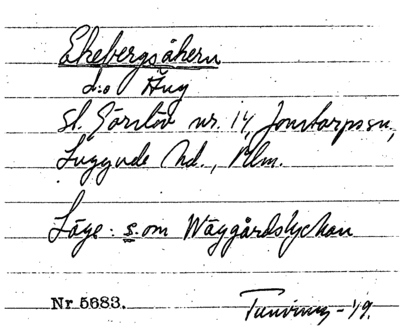 Ekebergsåkern
d:o Äng
St. Görslöv nr. 14, Jonstorps sn,
Luggude hd., Mlm.
Läge: s. om Wäggårdslyckan
Nr 5683.
-19.